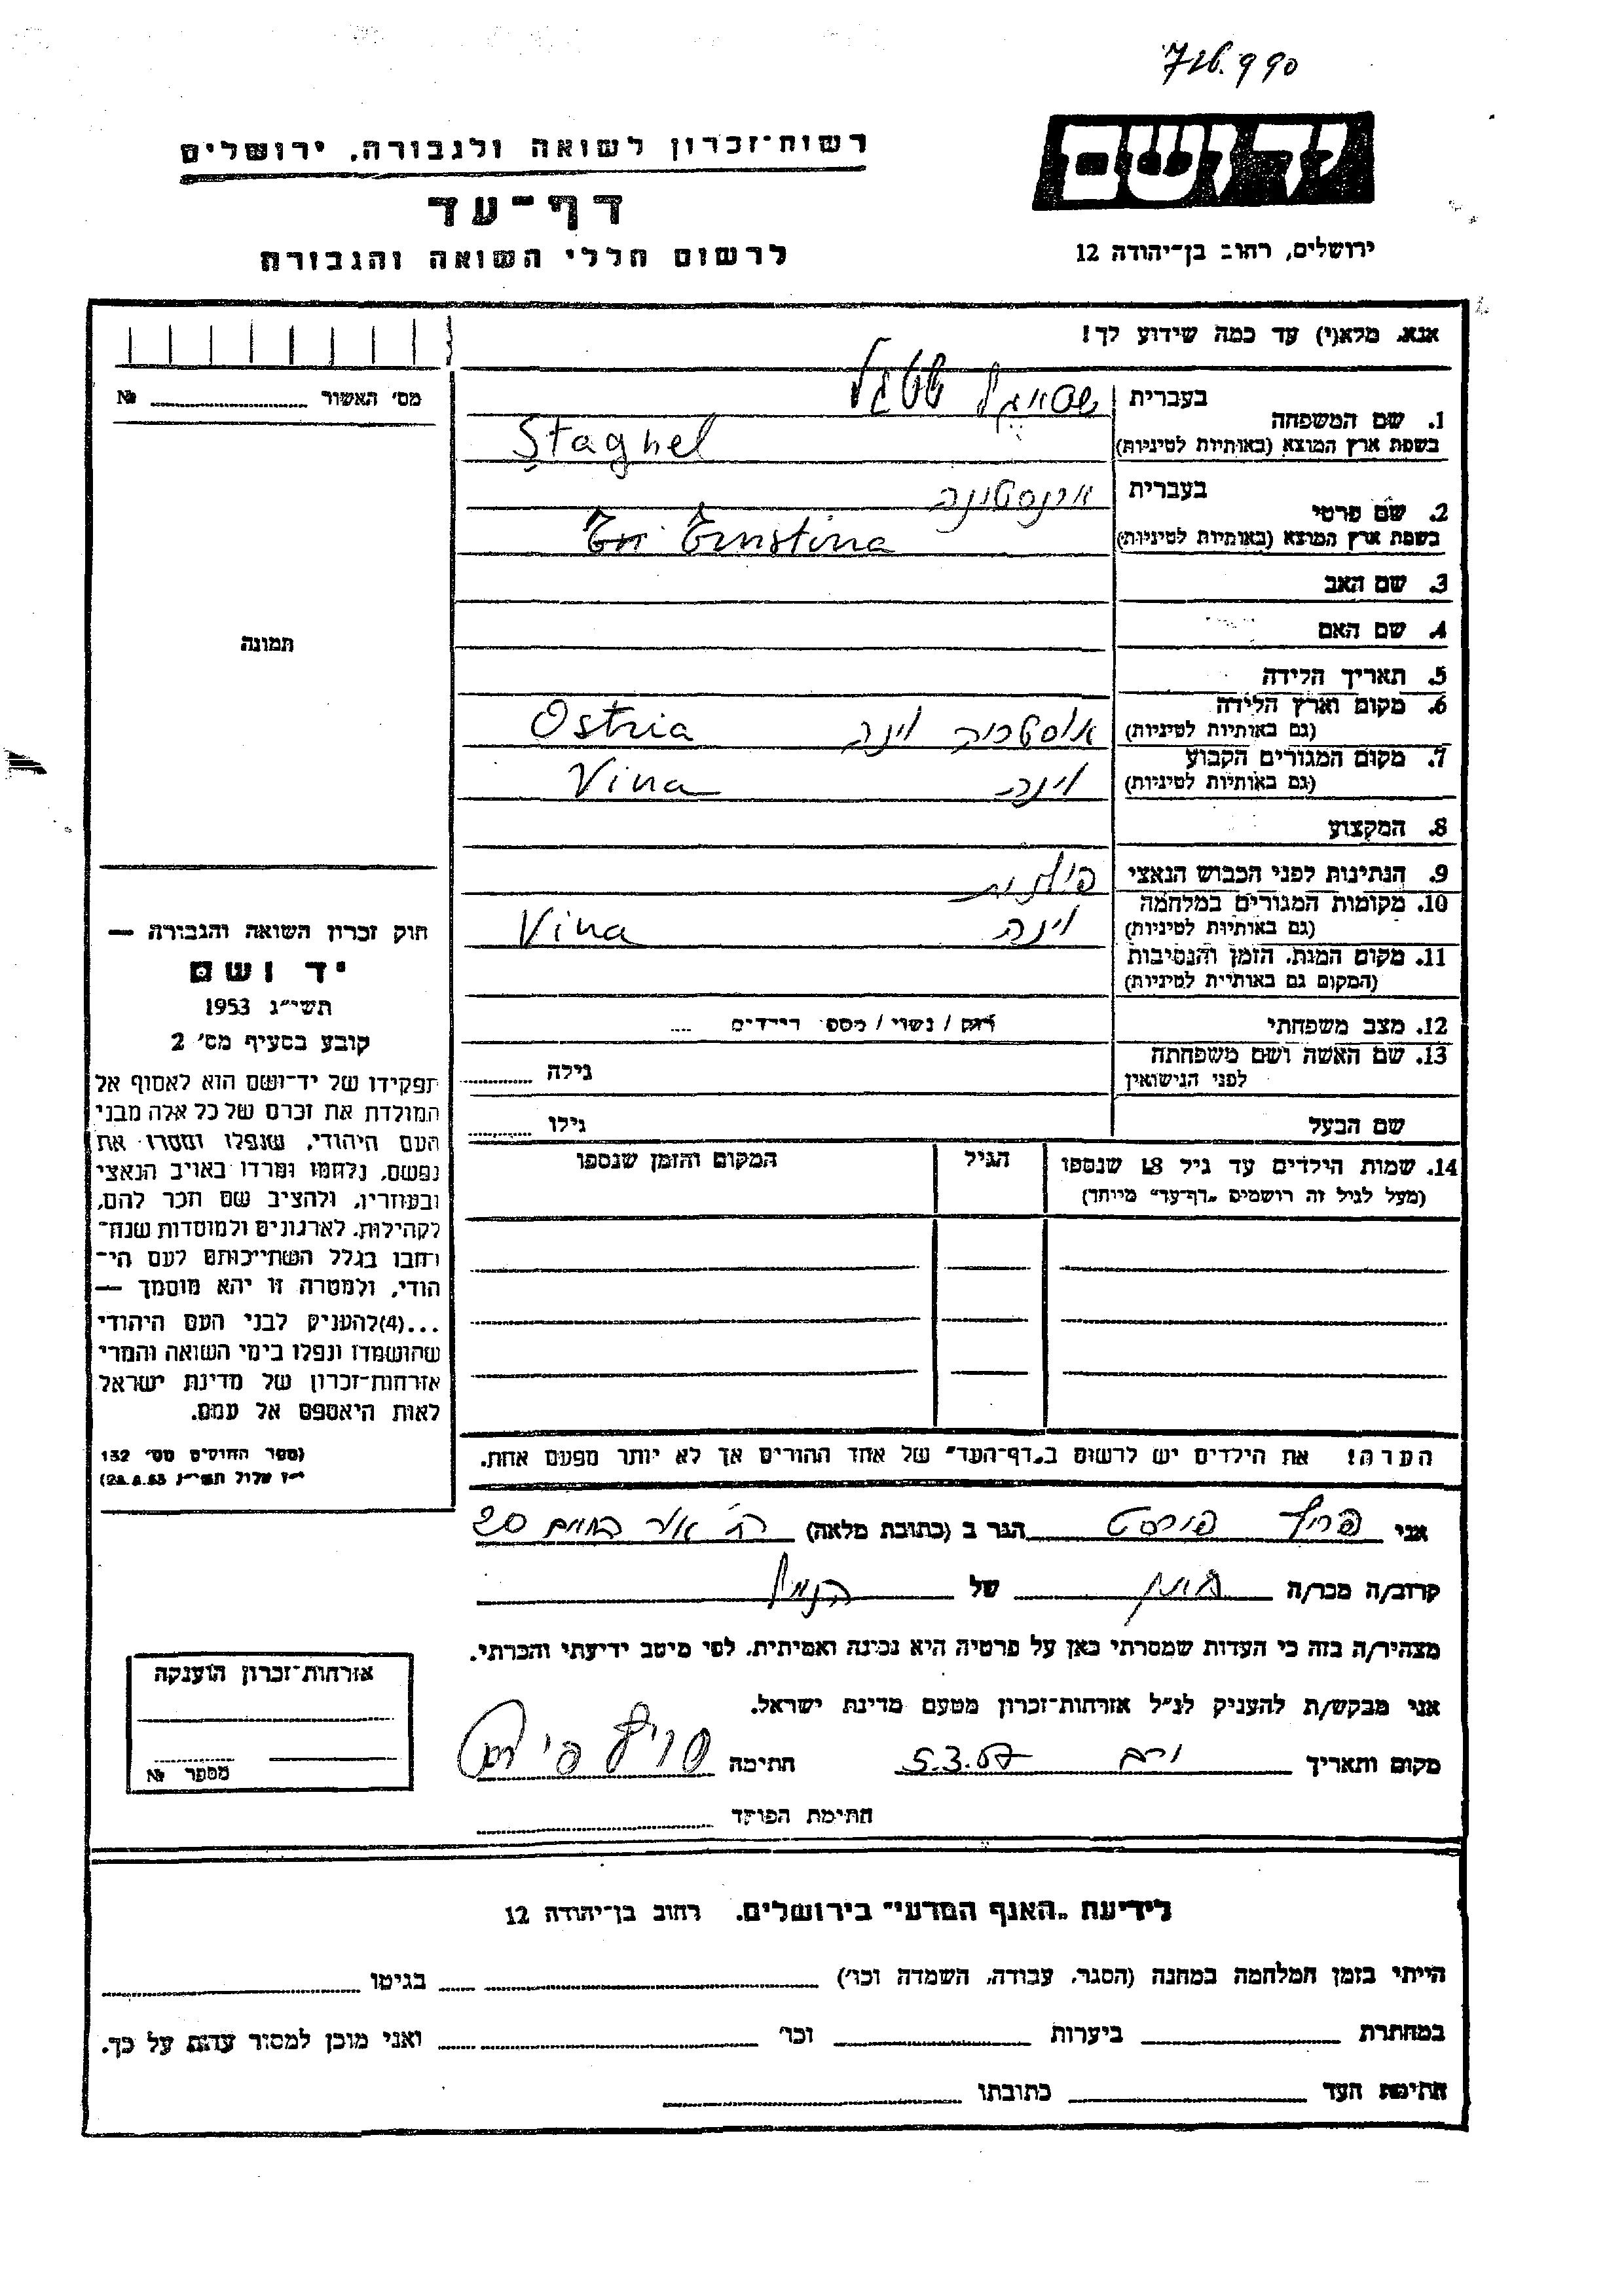 990
יד ושם
רשות-זכרון לשואה ולגבורה, ירושלים
דף-עד
לרשום חללי השואה והגבורה
ירושלים, רחוב בן-יהודה 12
אנא, מלא(י) עד כמה שידוע לך!
מס׳ האשור №
1. שם המשפחה
בעברית שטגל
בשפת ארץ המוצא (באותיות לטיניות) Staghel
2. שם פרטי
בעברית ארנסטינה
בשפת ארץ המוצא (באותיות לטיניות) Eri Ernstina
3. שם האב
4. שם האם
תמונה
5. תאריך הלידה
6. מקום וארץ הלידה
(גם באותיות לטיניות) אוסטריה וינה Ostria
7. מקום המגורים הקבוע
(גם באותיות לטיניות) וינה Vina
8. המקצוע
9. הנתינות לפני הכבוש הנאצי
10. מקומות המגורים במלחמה
(גם באותיות לטיניות) וינה Vina
11. מקום המות, הזמן והנסיבות
(המקום גם באותיות לטיניות)
12. מצב משפחתי רווק / נשוי / מספר הילדים ....
13. שם האשה ושם משפחתה
לפני הנישואין גילה
שם הבעל גילו
14. שמות הילדים עד גיל 18 שנספו הגיל המקום והזמן שנספו
(מעל לגיל זה רושמים „דף-עד״ מיוחד)
חוק זכרון השואה והגבורה —
יד ושם
תשי״ג 1953
קובע בסעיף מס׳ 2
תפקידו של יד-ושם הוא לאסוף אל
המולדת את זכרם של כל אלה מבני
העם היהודי, שנפלו ומסרו את
נפשם, נלחמו ומרדו באויב הנאצי
ובעוזריו, ולהציב שם וזכר להם,
לקהילות, לארגונים ולמוסדות שנח-
רבו בגלל השתייכותם לעם הי-
הודי, ולמטרה זו יהא מוסמך —
...(4)להעניק לבני העם היהודי
שהושמדו ונפלו בימי השואה והמרי
אזרחות-זכרון של מדינת ישראל
לאות היאספם אל עמם.
(ספר החוקים מס׳ 132
י״ז אלול תשי״ג 28.8.53)
הערה! את הילדים יש לרשום ב„דף-העד״ של אחד ההורים אך לא יותר מפעם אחת.
אני פריץ פירסט הגר ב (כתובת מלאה) 20
קרוב/ה מכר/ה של הנ״ל
מצהיר/ה בזה כי העדות שמסרתי כאן על פרטיה היא נכונה ואמיתית, לפי מיטב ידיעתי והכרתי.
אני מבקש/ת להעניק לנ״ל אזרחות-זכרון מטעם מדינת ישראל.
מקום ותאריך 5.3.57 חתימה
חתימת הפוקד
אזרחות-זכרון הוענקה
מספר №
לידיעת „האגף המדעי״ בירושלים, רחוב בן-יהודה 12
הייתי בזמן המלחמה במחנה (הסגר, עבודה, השמדה וכו׳) בגיטו
במחתרת ביערות וכו׳ ואני מוכן למסור עדות על כך.
חתימת העד כתובתו